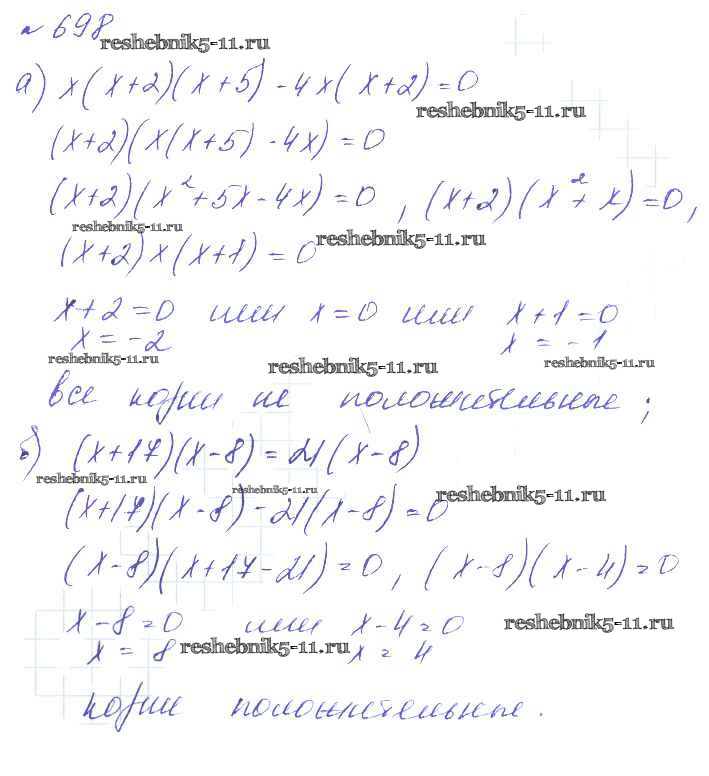 № 698
reshebnik5-11.ru
а) x(x+2)(x+5) - 4x(x+2) = 0
reshebnik5-11.ru
(x+2)(x(x+5) - 4x) = 0
(x+2)(x²+5x-4x) = 0, (x+2)(x²+x) = 0,
reshebnik5-11.ru
reshebnik5-11.ru
(x+2)x(x+1) = 0
x+2=0 или x=0 или x+1=0
x = -2 x = -1
reshebnik5-11.ru
reshebnik5-11.ru
reshebnik5-11.ru
все корни не положительные;
б) (x+17)(x-8) = 21(x-8)
reshebnik5-11.ru
reshebnik5-11.ru
reshebnik5-11.ru
(x+17)(x-8) - 21(x-8) = 0
(x-8)(x+17-21) = 0, (x-8)(x-4) = 0
x-8=0 или x-4=0
reshebnik5-11.ru
x = 8 x = 4
reshebnik5-11.ru
корни положительные.